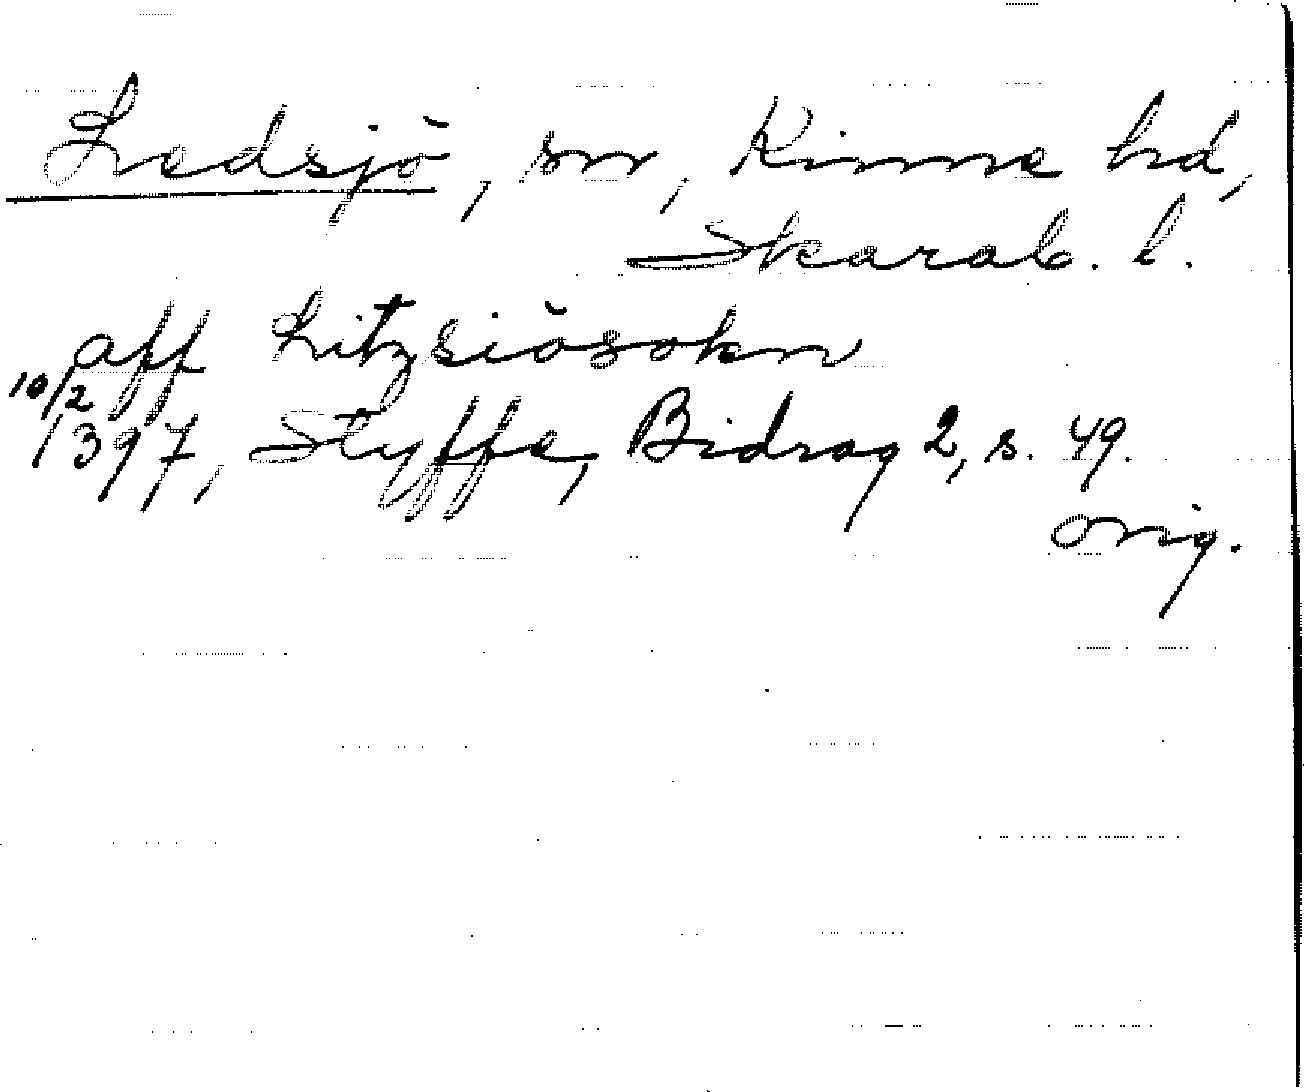 Ledsjö, sn, Kinne hd,
Skarab. l.
aff Litzsiösokn
10/2
1397, Styffe, Bidrag 2, s. 49.
orig.